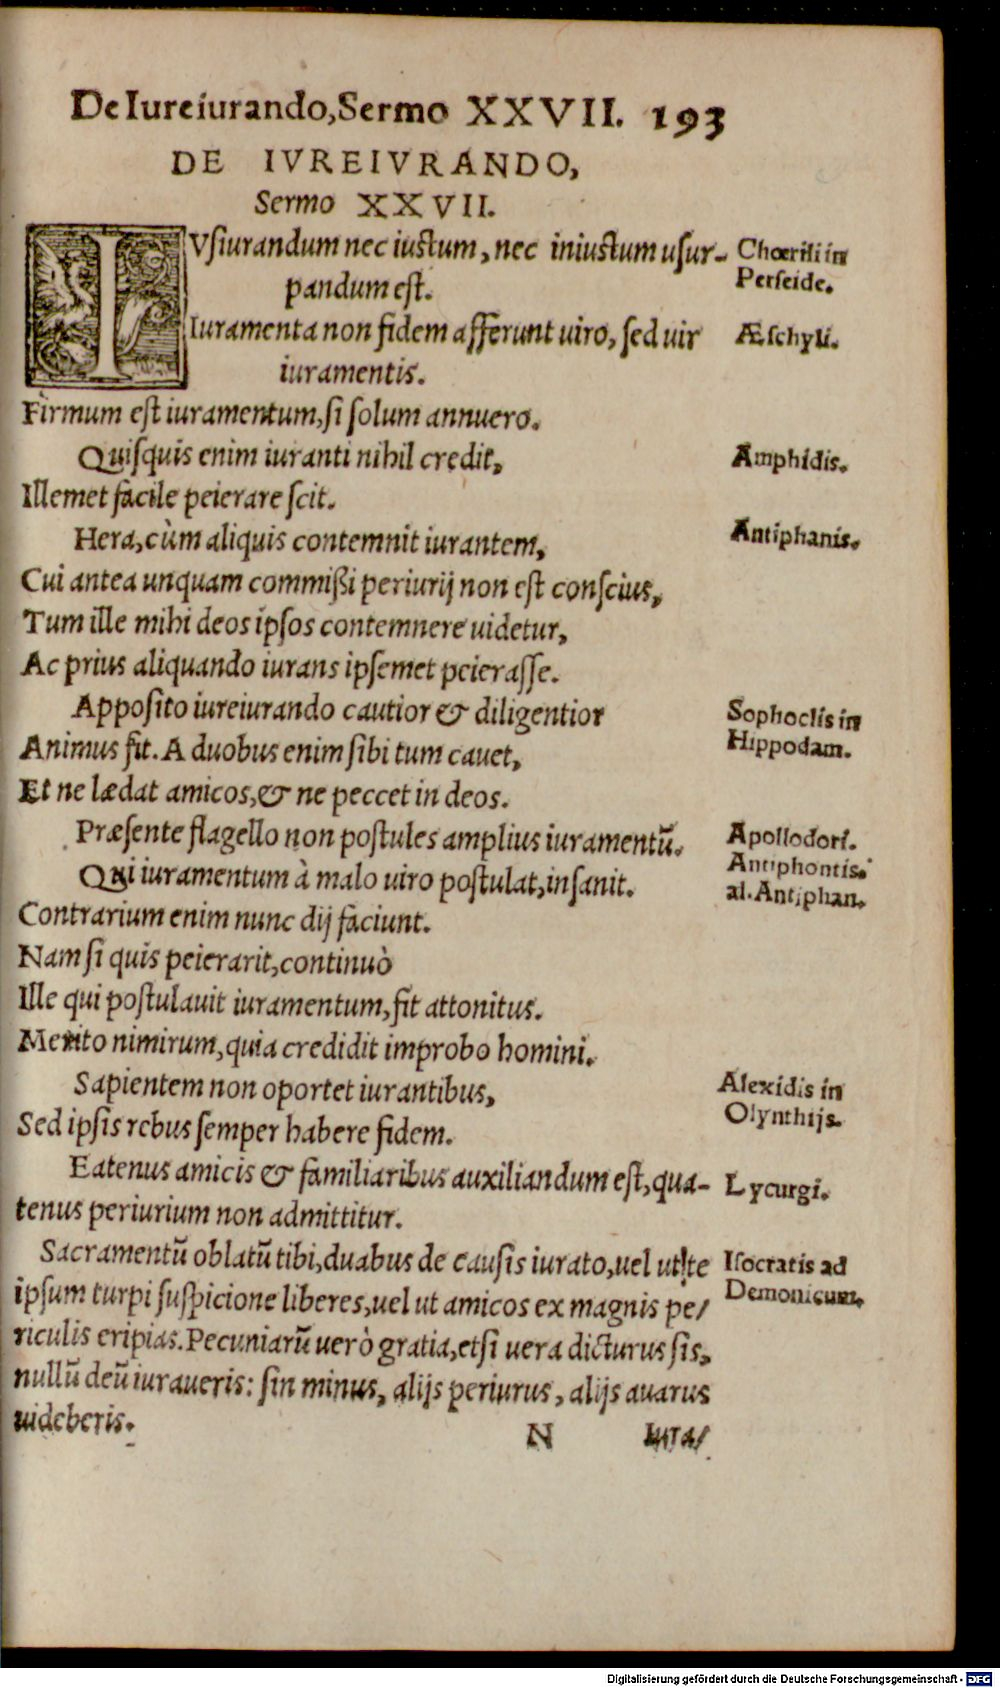 De Iureiurando, Sermo XXVII. 193
DE IVREIVRANDO,
Sermo XXVII.
IVSiurandum nec iustum, nec iniustum usur-
pandum est.
Choerili in
Perseide.
Iuramenta non fidem afferunt uiro, sed uir
iuramentis.
Æschyli.
Firmum est iuramentum, si solum annuero.
Quisquis enim iuranti nihil credit,
Amphidis.
Illemet facile peierare scit.
Hera, cùm aliquis contemnit iurantem,
Antiphanis.
Cui antea unquam commißi periurij non est conscius,
Tum ille mihi deos ipsos contemnere uidetur,
Ac prius aliquando iurans ipsemet peierasse.
Apposito iureiurando cautior & diligentior
Sophoclis in
Hippodam.
Animus fit. A duobus enim sibi tum cauet,
Et ne lædat amicos, & ne peccet in deos.
Præsente flagello non postules amplius iuramentũ.
Apollodori.
Qui iuramentum à malo uiro postulat, insanit.
Antiphontis.
al. Antiphan.
Contrarium enim nunc dij faciunt.
Nam si quis peierarit, continuò
Ille qui postulauit iuramentum, fit attonitus.
Merito nimirum, quia credidit improbo homini.
Sapientem non oportet iurantibus,
Alexidis in
Olynthijs.
Sed ipsis rebus semper habere fidem.
Eatenus amicis & familiaribus auxiliandum est, qua-
Lycurgi.
tenus periurium non admittitur.
Sacramentũ oblatũ tibi, duabus de causis iurato, uel ut te
Isocratis ad
Demonicum.
ipsum turpi suspicione liberes, uel ut amicos ex magnis pe/
riculis eripias. Pecuniarũ uerò gratia, etsi uera dicturus sis,
nullũ deũ iuraueris: sin minus, alijs periurus, alijs auarus
uideberis.
N Iura/
Digitalisierung gefördert durch die Deutsche Forschungsgemeinschaft - DFG